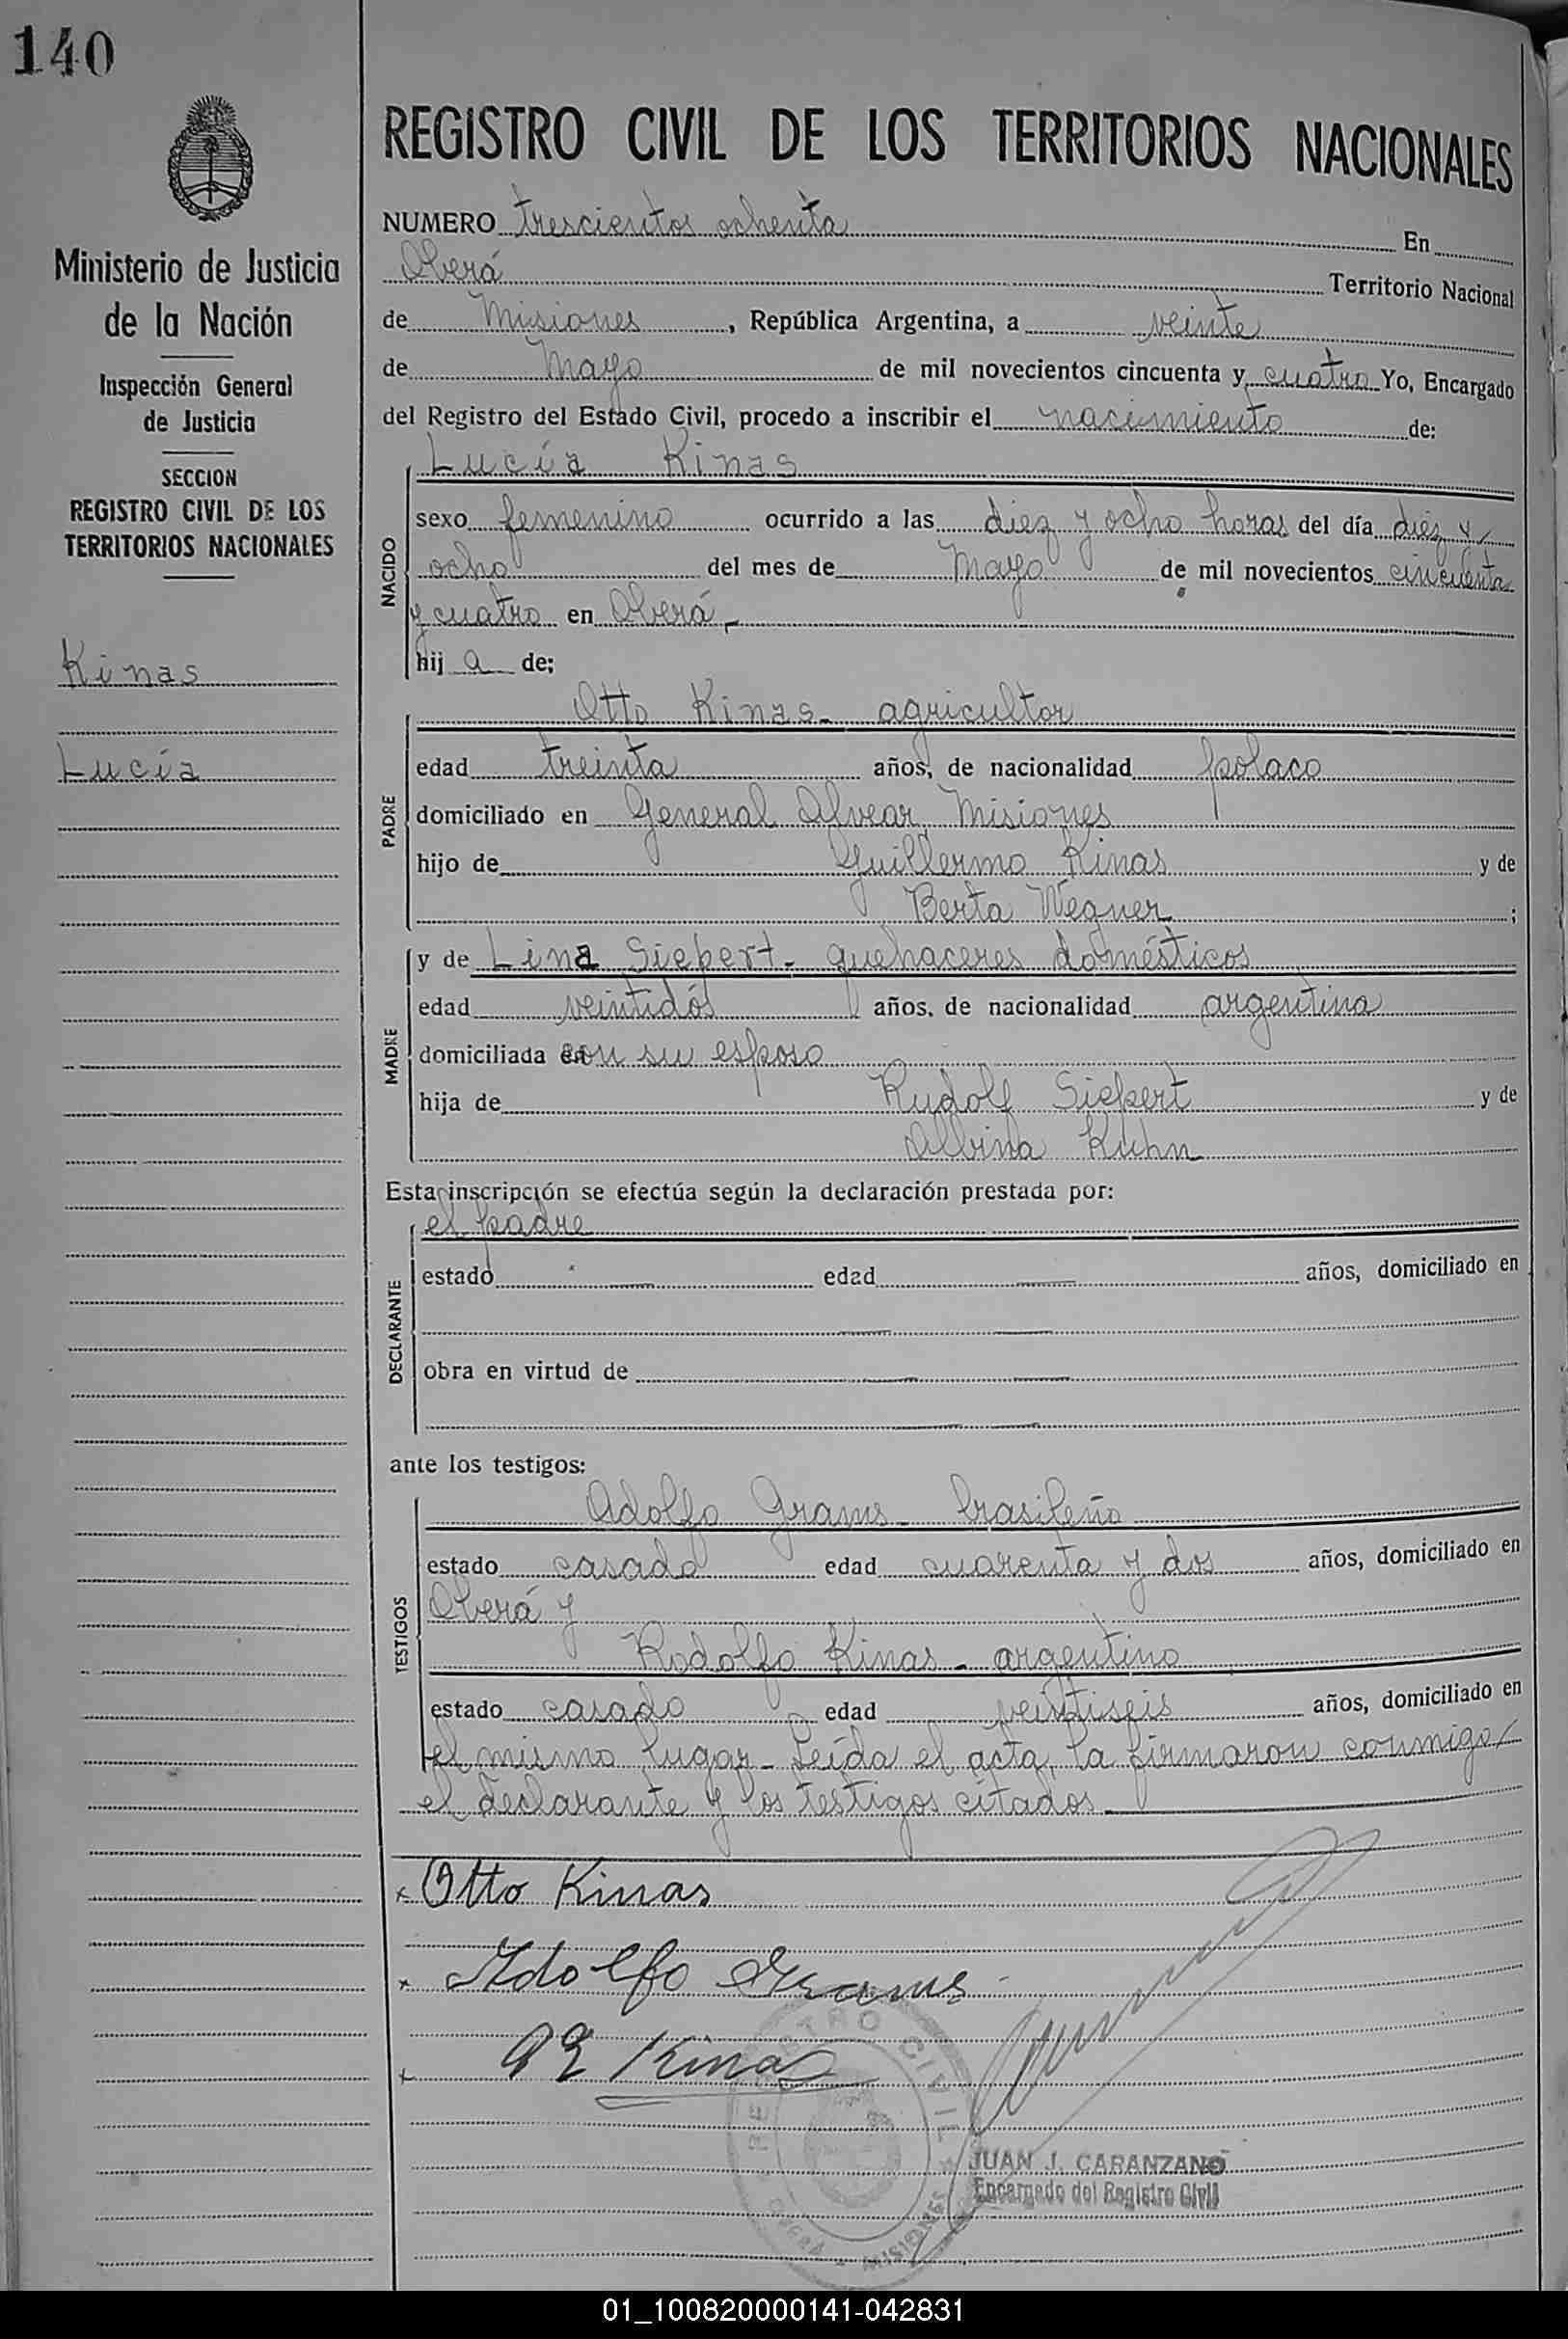 140
Ministerio de Justicia
de la Nación
Inspección General
de Justicia
SECCION
REGISTRO CIVIL DE LOS
TERRITORIOS NACIONALES
Kinas
Lucía
REGISTRO CIVIL DE LOS TERRITORIOS NACIONALES
NUMERO trescientos ochenta En
Oberá Territorio Nacional
de Misiones, República Argentina, a veinte
de Mayo de mil novecientos cincuenta y cuatro Yo, Encargado
del Registro del Estado Civil, procedo a inscribir el nacimiento de:
Lucía Kinas
NACIDO
sexo femenino ocurrido a las diez y ocho horas del día diez y
ocho del mes de Mayo de mil novecientos cincuenta
y cuatro en Oberá.-
hij a de;
Otto Kinas- agricultor
PADRE
edad treinta años, de nacionalidad polaco
domiciliado en General Alvear Misiones
hijo de Guillermo Kinas y de
Berta Wegner;
y de Lina Siepert- quehaceres domésticos
MADRE
edad veintidós años, de nacionalidad argentina
domiciliada en con su esposo
hija de Rudolf Siepert y de
Albina Kuhn
Esta inscripción se efectúa según la declaración prestada por:
el padre
DECLARANTE
estado — edad — años, domiciliado en
— —
obra en virtud de — —
— —
ante los testigos:
Adolfo Grams- brasileño
TESTIGOS
estado casado edad cuarenta y dos años, domiciliado en
Oberá y
Rodolfo Kinas- argentino
estado casado edad veintiseis años, domiciliado en
el mismo lugar- Leída el acta, la firmaron conmigo
el declarante y los testigos citados.
x Otto Kinas
x Adolfo Grams
x Kinas
REGISTRO CIVIL
OBERA - MISIONES
JUAN J. CARANZANO
Encargado del Registro Civil
01_100820000141-042831